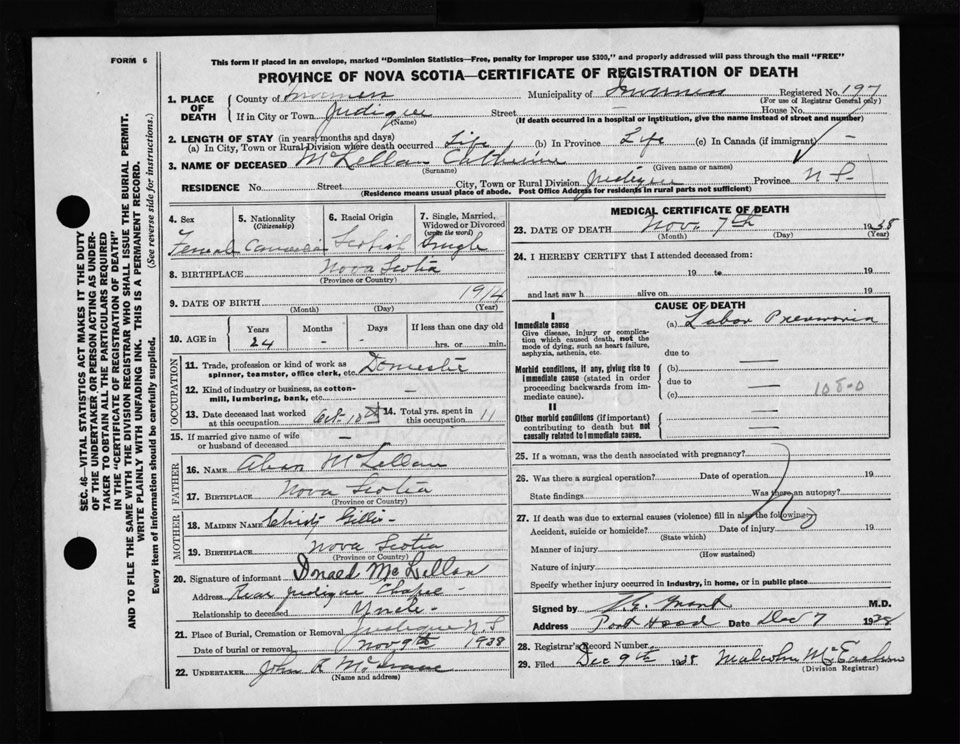 FORM 6
This form if placed in an envelope, marked "Dominion Statistics—Free, penalty for improper use $300," and properly addressed will pass through the mail "FREE"
PROVINCE OF NOVA SCOTIA—CERTIFICATE OF REGISTRATION OF DEATH
SEC. 46—VITAL STATISTICS ACT MAKES IT THE DUTY
OF THE UNDERTAKER OR PERSON ACTING AS UNDER-
TAKER TO OBTAIN ALL THE PARTICULARS REQUIRED
IN THE "CERTIFICATE OF REGISTRATION OF DEATH"
AND TO FILE THE SAME WITH THE DIVISION REGISTRAR WHO SHALL ISSUE THE BURIAL PERMIT.
WRITE PLAINLY WITH UNFADING INK. THIS IS A PERMANENT RECORD.
Every item of information should be carefully supplied. (See reverse side for instructions.)
1. PLACE OF DEATH County of Inverness Municipality of Inverness Registered No. 197
(For use of Registrar General only)
If in City or Town Judique Street House No.
(Name) (If death occurred in a hospital or institution, give the name instead of street and number)
2. LENGTH OF STAY (in years, months and days)
(a) In City, Town or Rural Division where death occurred Life (b) In Province Life (c) In Canada (if immigrant) –
3. NAME OF DECEASED McLellan Catherine
(Surname) (Given name or names)
RESIDENCE No. Street City, Town or Rural Division Judique Province N S
(Residence means usual place of abode. Post Office Address for residents in rural parts not sufficient)
4. Sex 5. Nationality (Citizenship) 6. Racial Origin 7. Single, Married, Widowed or Divorced (write the word)
Female Canadian Scotish Single
8. BIRTHPLACE Nova Scotia
(Province or Country)
9. DATE OF BIRTH 1914
(Month) (Day) (Year)
10. AGE in Years Months Days If less than one day old
24 – – hrs. or min.
OCCUPATION
11. Trade, profession or kind of work as spinner, teamster, office clerk, etc. Domestic
12. Kind of industry or business, as cotton-mill, lumbering, bank, etc. –
13. Date deceased last worked at this occupation Oct. 10th 14. Total yrs. spent in this occupation 11
15. If married give name of wife or husband of deceased –
FATHER
16. NAME McLellan
17. BIRTHPLACE Nova Scotia
(Province or Country)
MOTHER
18. MAIDEN NAME Gillis
19. BIRTHPLACE Nova Scotia
(Province or Country)
20. Signature of informant Donald McLellan
Address Rear Judique Chapel
Relationship to deceased Uncle
21. Place of Burial, Cremation or Removal Judique N.S
Date of burial or removal Nov 9th 1938
22. UNDERTAKER John R
(Name and address)
MEDICAL CERTIFICATE OF DEATH
23. DATE OF DEATH Nov 7th 1938
(Month) (Day) (Year)
24. I HEREBY CERTIFY that I attended deceased from:
19 to 19
and last saw h alive on 19
CAUSE OF DEATH
I
Immediate cause (a) Lobar Pneumonia
Give disease, injury or complica-
tion which caused death, not the
mode of dying, such as heart failure,
asphyxia, asthenia, etc. due to
Morbid conditions, if any, giving rise to (b)
immediate cause (stated in order due to
proceeding backwards from im- (c) 108-0
mediate cause).
II
Other morbid conditions (if important)
contributing to death but not
causally related to immediate cause.
25. If a woman, was the death associated with pregnancy?
26. Was there a surgical operation? Date of operation 19
State findings Was there an autopsy?
27. If death was due to external causes (violence) fill in also the following:
Accident, suicide or homicide? Date of injury 19
(State which)
Manner of injury
(How sustained)
Nature of injury
Specify whether injury occurred in industry, in home, or in public place
Signed by Grant M.D.
Address Port Hood Date Dec 7 1938
28. Registrar's Record Number
29. Filed Dec 9th 1938 Malcolm McEachern
(Division Registrar)